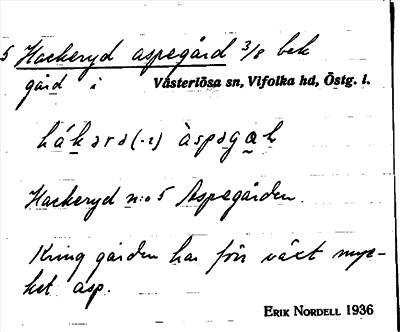 5 Hackeryd aspegård 3/8 bek
gård i Västerlösa sn, Vifolka hd, Östg. l.
hákərə(-ɩ) àspəgaḷ
Hackeryd n:o 5 Aspegården.
Kring gården har förr växt myc-
ket asp.
ERIK NORDELL 1936